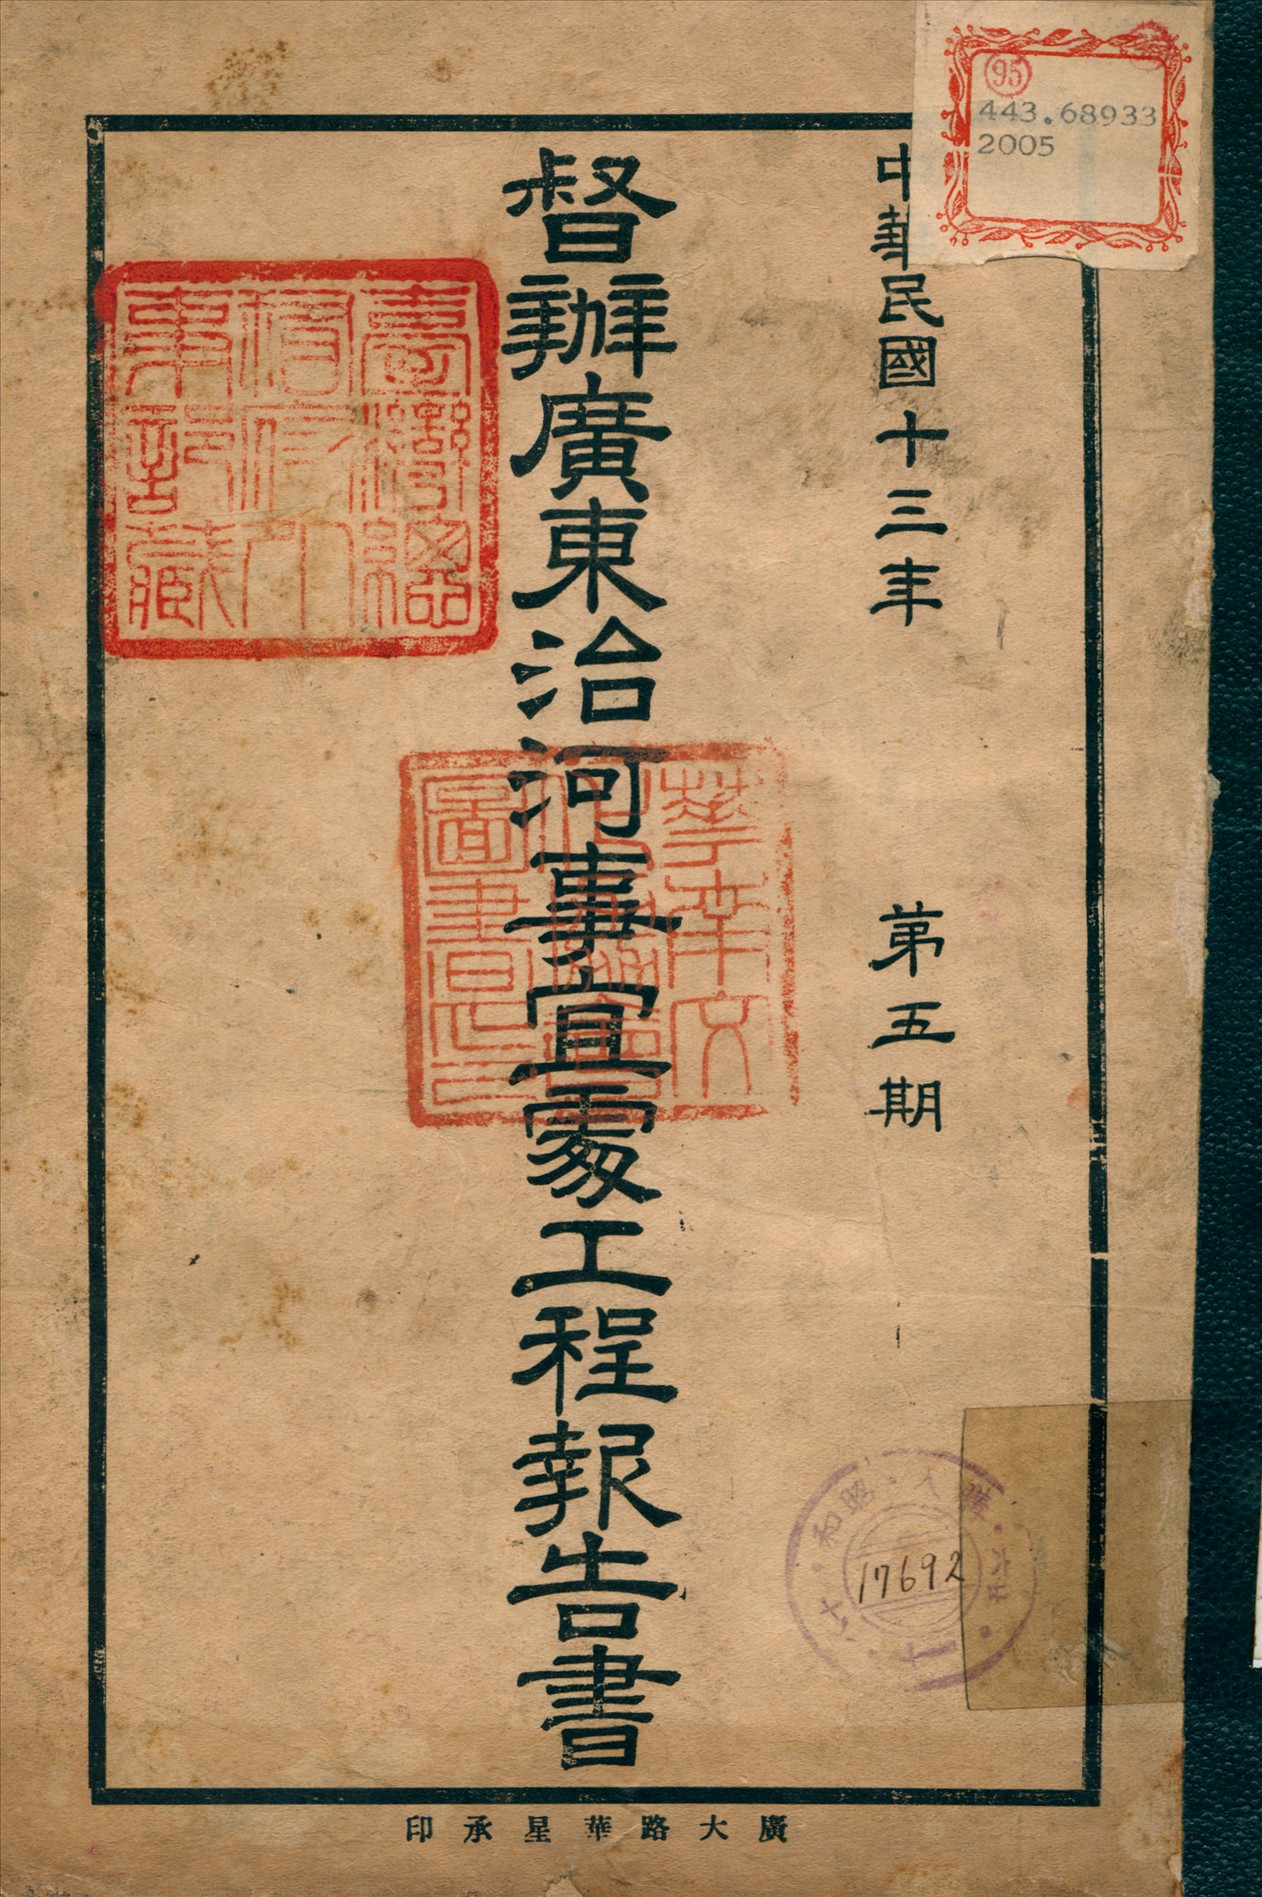 95
443.68933
2005
中華民國十三年 第五期
督辦廣東治河事宜處工程報告書
臺灣總
督府
事部藏
圖書
昭和
17692
廣大路華星承印